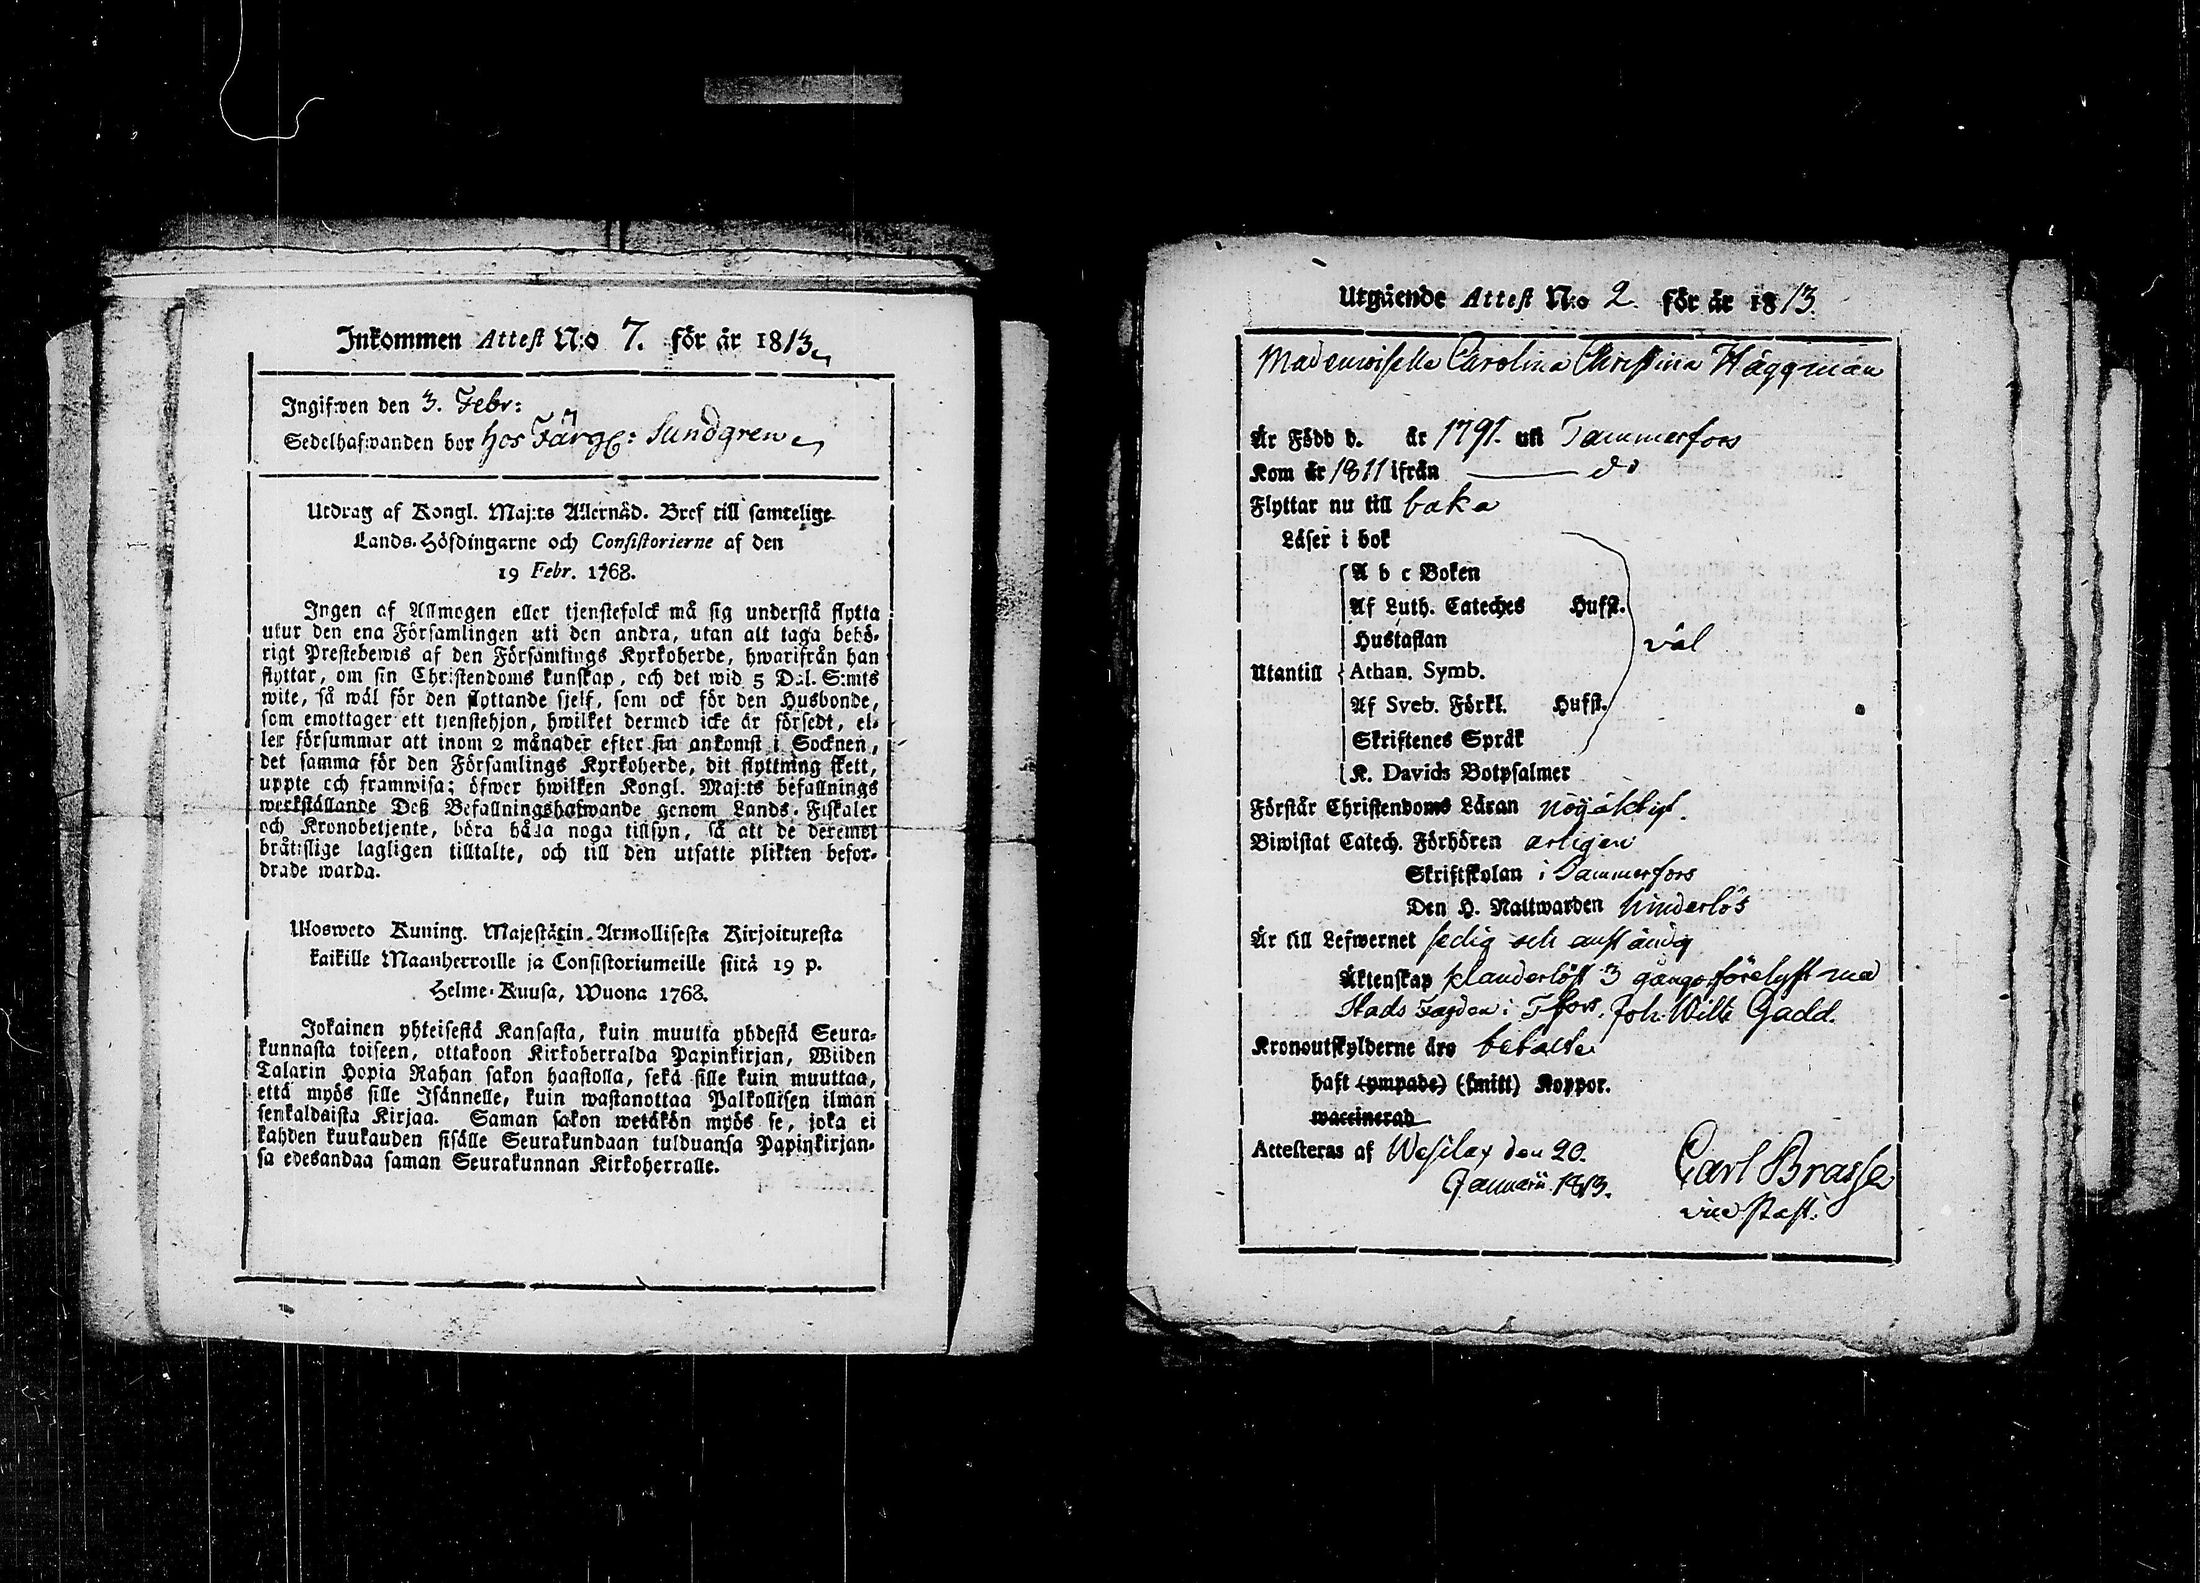 Inkommen Attest N:o 7. för år 1813
Ingifwen den 3. Febr:
Sedelhafwanden bor hos Färg: Sundgren
Utdrag af Kongl. Maj:ts Allernåd. Bref till samtelige
Lands-Höfdingarne och Consistorierne af den
19 Febr. 1768.
Ingen af Allmogen eller tjenstefolck må sig understå flytta
utur den ena Församlingen uti den andra, utan att taga behö-
rigt Prestebewis af den Församlings Kyrkoherde, hwarifrån han
flyttar, om sin Christendoms kunskap, och det wid 5 Dal. S:mts
wite, så wäl för den flyttande sjelf, som ock för den Husbonde,
som emottager ett tjenstehjon, hwilket dermed icke är försedt, el-
ler försummar att inom 2 månader efter sin ankomst i Socknen,
det samma för den Församlings Kyrkoherde, dit flyttning skett,
uppte och framwisa; öfwer hwilken Kongl. Maj:ts befallnings
werkställande Deß Befallningshafwande genom Lands-Fiskaler
och Kronobetjente, böra hålla noga tillsyn, så att de deremot
bråtslige lagligen tilltalte, och till den utsatte plikten befor-
drade warda.
Ulosweto Kuning. Majestätin Armollisesta Kirjoituxesta
kaikille Maanherroille ja Consistoriumeille siitä 19 p.
Helme-Kuusa, Wuona 1768.
Jokainen yhteisestä Kansasta, kuin muutta yhdestä Seura-
kunnasta toiseen, ottakoon Kirkoherralda Papinkirjan, Wiiden
Talarin Hopia Rahan sakon haastolla, sekä sille kuin muuttaa,
että myös sille Isännelle, kuin wastanottaa Palkollisen ilman
senkaldaista Kirjaa. Saman sakon wetäkön myös se, joka ei
kahden kuukauden sisälle Seurakundaan tulduansa Papinkirjan-
sa edesandaa saman Seurakunnan Kirkoherralle.
Utgående Attest N:o 2. för år 1813.
Mademoiselle Carolina Christina Häggman
Är Född d. år 1791. uti Tammerfors
Kom år 1811 ifrån do
Flyttar nu till baka
Läser i bok
A b c Boken
Af Luth. Cateches Hufst.
Hustaflan
väl
Utantill Athan. Symb.
Af Sveb. Förkl. Hufst.
Skriftenes Språk
K. Davids Botpsalmer
Förstår Christendoms Läran nöjaktigt.
Biwistat Catech. Förhören årligen
Skriftskolan i Tammerfors
Den H. Nattwarden hinderlös
Är till Lefwernet sedig och anständig
Äktenskap klanderlöst 3 gångor förelyst med
Stads Fogden i T.fors. Joh. Wilh Gadd.
Kronoutskylderne äro betalte
haft (ympade) (smitt) Koppor.
waccinerad
Attesteras af Wesilax den 20.
Januarii 1813.
Carl Brasse
vice Past: